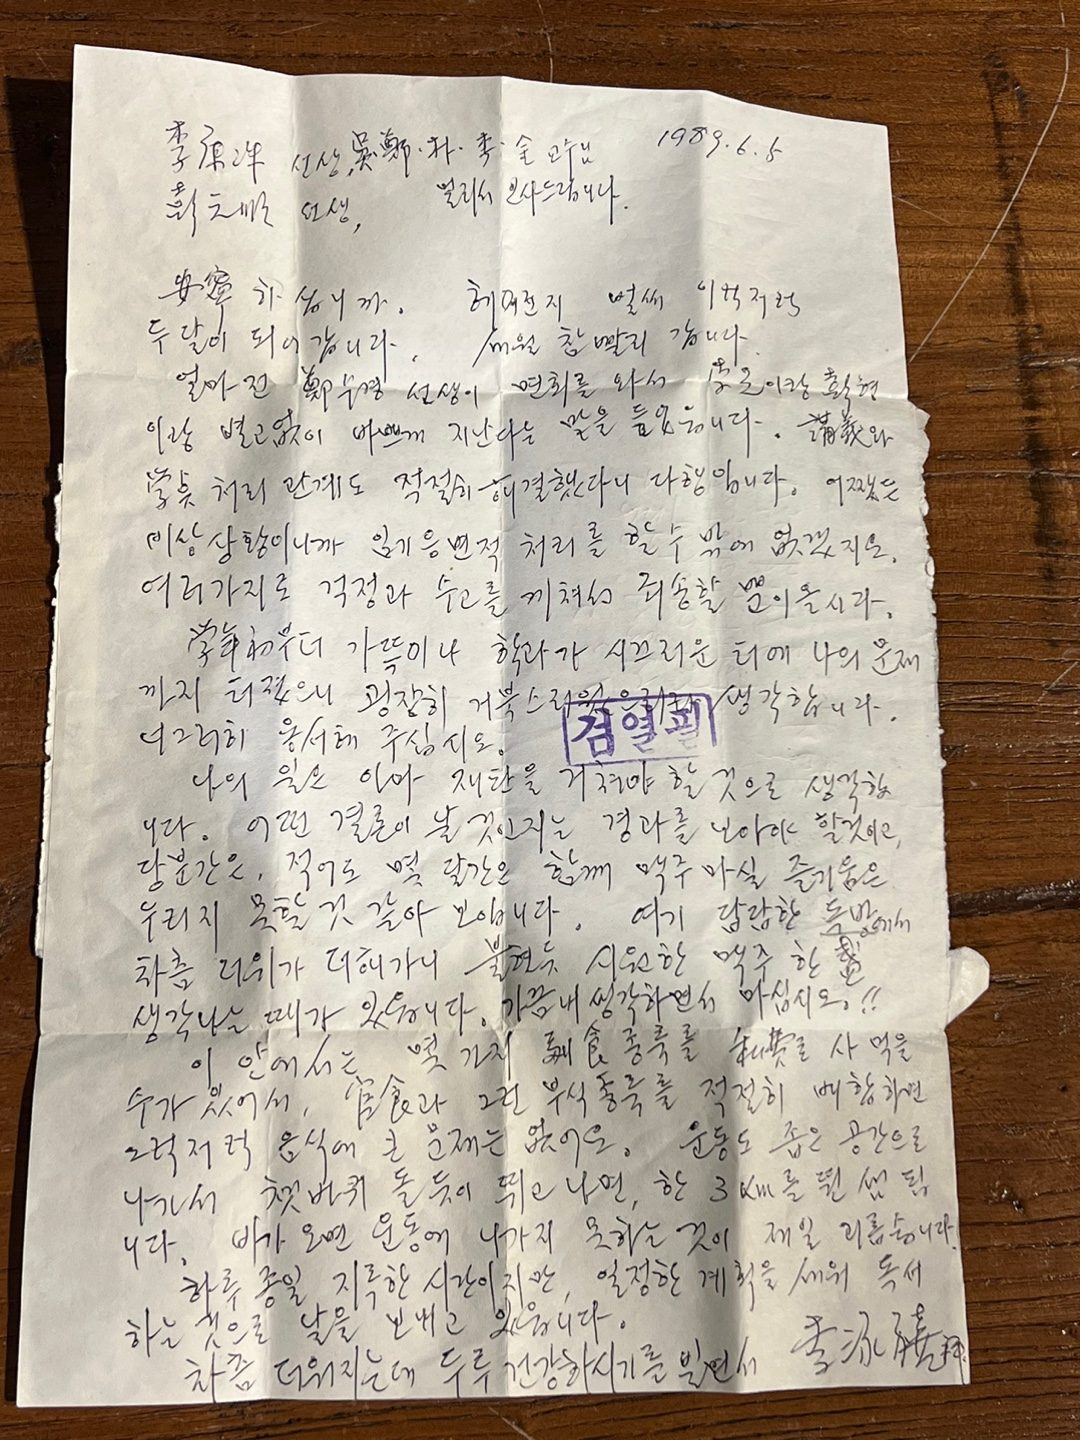 李 선생, 吳·鄭·朴·李·金 교수님 1989. 6. 5
선생, 멀리서 인사드립니다.
安寧 하십니까. 헤어진지 벌써 이럭저럭
두 달이 되어갑니다. 세월 참 빨리 갑니다.
얼마 전 鄭수경 선생이 면회를 와서 이랑
이랑 별고없이 바쁘게 지난다는 말을 들었읍니다. 講義와
学点 처리 관계도 적절히 해결했다니 다행입니다. 어쨌든
비상상황이니까 임기응변적 처리를 할 수 밖에 없겠지요.
여러가지로 걱정과 수고를 끼쳐서 죄송할 뿐이올시다.
学年初부터 가뜩이나 학과가 시끄러운 터에 나의 문제
까지 터졌으니 굉장히 거북스러웠으리라 생각합니다.
너그러히 용서해 주십시오.
검열필
나의 일은 아마 재판을 거쳐야 할 것으로 생각합
니다. 어떤 결론이 날 것인지는 경과를 보아야 할것이고,
당분간은, 적어도 몇 달간은 함께 맥주 마실 즐거움은
누리지 못할 것 같아 보입니다. 여기 답답한 독방에서
차츰 더위가 더해가니 불현듯 시원한 맥주 한 盞
생각나는 때가 있읍니다. 가끔 내 생각하면서 마십시오.!!
이 안에서는 몇 가지 副食 종류를 私費로 사 먹을
수가 있어서, 官食과 그런 부식종류를 적절히 배합하면
그럭저럭 음식에 큰 문제는 없어요. 운동도 좁은 공간으로
나가서 쳇바퀴 돌듯이 뛰고 나면, 한 3 km를 뛴 셈 됩
니다. 비가 오면 운동에 나가지 못하는 것이 제일 괴롭습니다.
하루 종일 지루한 시간이지만, 일정한 계획을 세워 독서
하는 것으로 날을 보내고 있읍니다.
차츰 더워지는데 두루 건강하시기를 빌면서 李泳禧